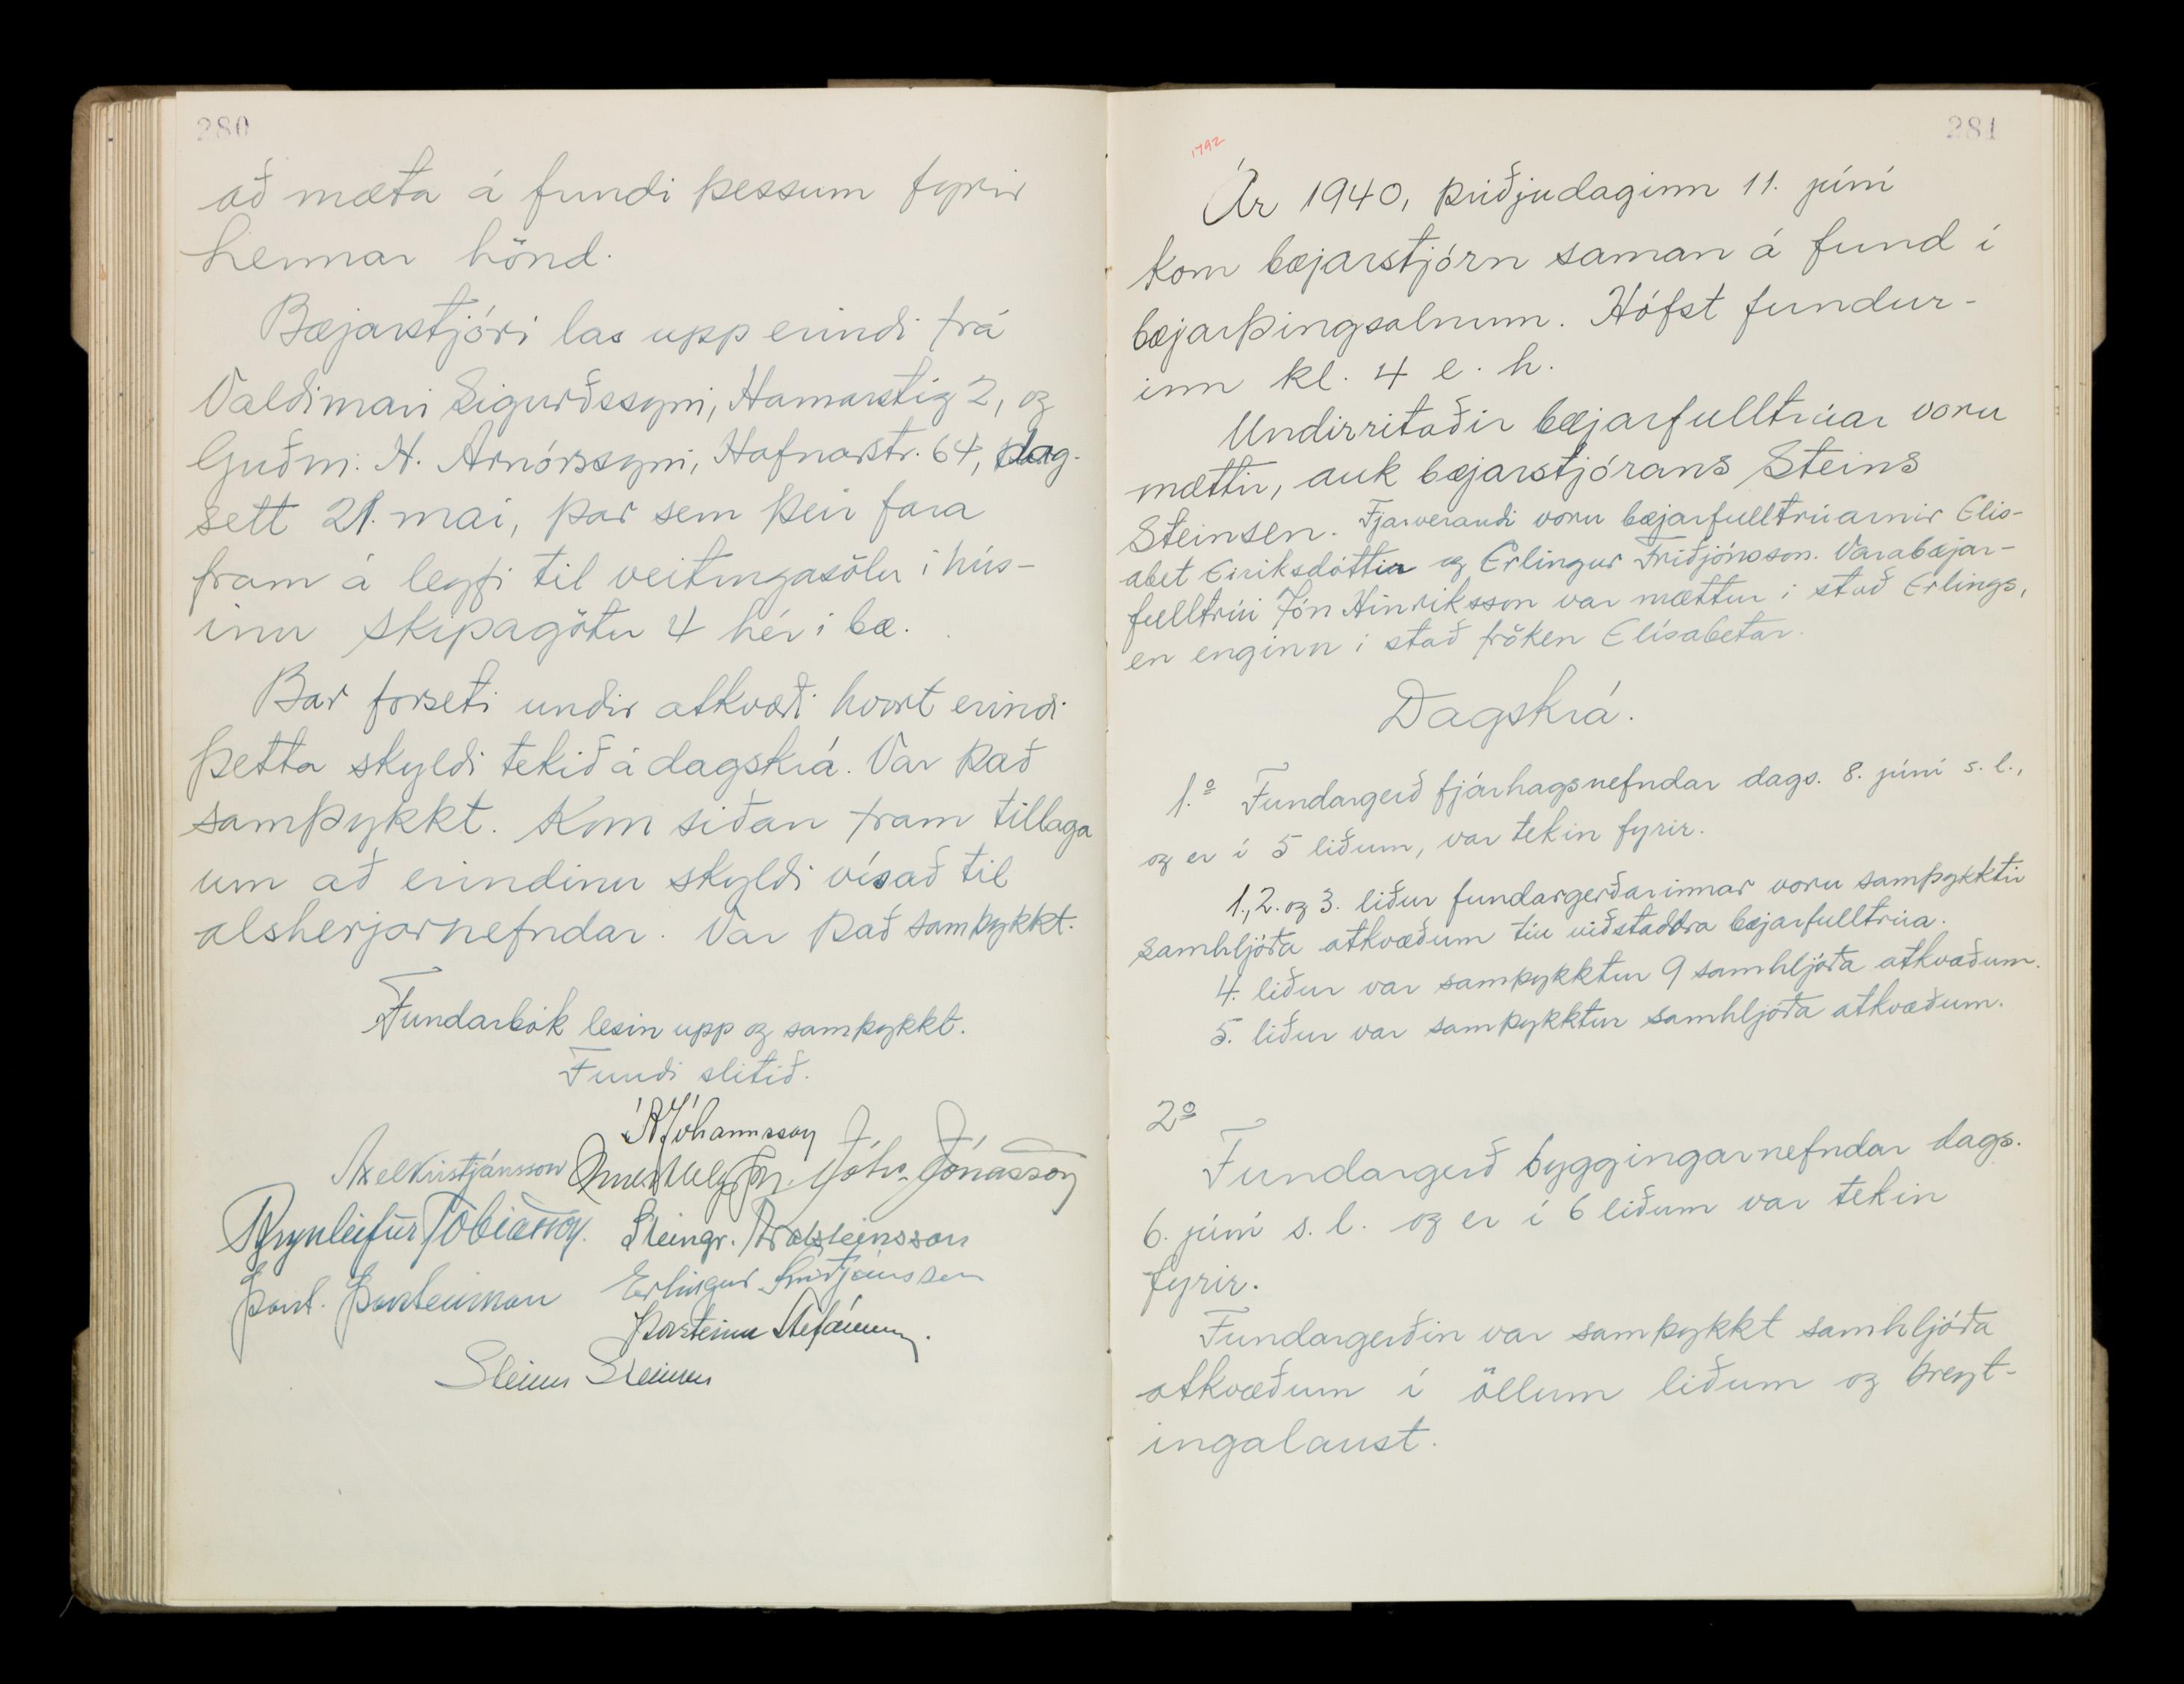 280
að mæta á fundi þessum fyrir
hennar hönd.
Bæjarstjóri las upp erindi frá
Valdimari Sigurðssyni, Hamarstíg 2, og
Guðm. H. Arnórssyni, Hafnarstr. 64, dag-
sett 21. mai, þar sem þeir fara
fram á leyfi til veitingasölu í hús-
inu Skipagötu 4 hér í bæ.
Bar forseti undir atkvæði hvort erindi
þetta skyldi tekið á dagskrá. Var það
samþykkt. Kom síðan fram tillaga
um að erindinu skyldi vísað til
alsherjarnefndar. Var það samþykkt.
Fundarbók lesin upp og samþykkt.
Fundi slitið.
Á Jóhannsson
Axel Kristjánsson Jóh. Jónasson
Brynleifur Tobiasson. Steingr. Aðalsteinsson
Þorst. Þorsteinsson Erlingur Friðjónsson
Þorsteinn Stefánsson.
Steinn Steinsen
281
1792
Ár 1940, þriðjudaginn 11. júní
kom bæjarstjórn saman á fund í
bæjarþingsalnum. Hófst fundur-
inn kl. 4 e. h.
Undirritaðir bæjarfulltrúar voru
mættir, auk bæjarstjórans Steins
Steinsen. Fjarverandi voru bæjarfulltrúarnir Elis-
abet Eiriksdóttir og Erlingur Friðjónsson. Varabæjar-
fulltrúi Jón Hinriksson var mættur í stað Erlings,
en enginn í stað fröken Elísabetar.
Dagskrá.
1.º Fundargerð fjárhagsnefndar dags. 8. júní s. l.,
og er í 5 liðum, var tekin fyrir.
1., 2. og 3. liður fundargerðarinnar voru samþykktir
samhljóða atkvæðum tíu viðstaddra bæjarfulltrúa.
4. liður var samþykktur 9 samhljóða atkvæðum.
5. liður var samþykktur samhljóða atkvæðum.
2º
Fundargerð byggingarnefndar dags.
6. júní s. l. og er í 6 liðum var tekin
fyrir.
Fundargerðin var samþykkt samhljóða
atkvæðum í öllum liðum og breyt-
ingalaust.